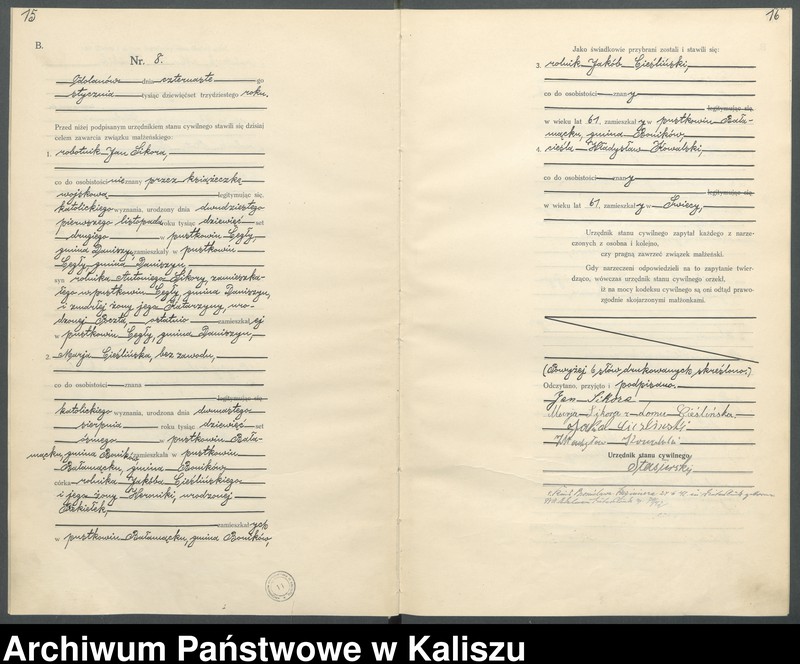 15
B.
Nr. 8.
Odolanów dnia czternaste go
stycznia tysiąc dziewięćset trzydziestego roku.
Przed niżej podpisanym urzędnikiem stanu cywilnego stawili się dzisiaj
celem zawarcia związku małżeńskiego:
1. robotnik Jan Sikora,
co do osobistości nieznany przez książeczkę
wojskową legitymując się,
katolickiego wyznania, urodzony dnia dwudziestego
pierwszego listopada roku tysiąc dziewięć set
drugiego w pustkowiu Cegły,
gmina Daniszyn, zamieszkały w pustkowiu
Cegły, gmina Daniszyn,
syn rolnika Antoniego Sikory, zamieszka-
łego w pustkowiu Cegły gmina Daniszyn,
i zmarłej żony jego Katarzyny, uro-
dzonej ostatnio zamieszkał ej
w pustkowiu Cegły, gmina Daniszyn,
2. Marja Cieślińska, bez zawodu,
co do osobistości znana
legitymując się
katolickiego wyznania, urodzona dnia dwunastego
sierpnia roku tysiąc dziewięć set
ósmego w pustkowiu Bała-
mącku, gmina zamieszkała w pustkowiu
Bałamącku, gmina Boników
córka rolnika Jakóba Cieślińskiego
i jego żony Weroniki, urodzonej
zamieszkał ych
w pustkowiu Bałamącku, gmina Boników,
16
Jako świadkowie przybrani zostali i stawili się:
3. rolnik Jakób Cieśliński,
co do osobistości znany
legitymując się
w wieku lat 61, zamieszkał y w pustkowiu Bała-
mącku, gmina Boników,
4. cieśla Władysław Kowalski,
co do osobistości znany
legitymując się
w wieku lat 61, zamieszkał y w
Urzędnik stanu cywilnego zapytał każdego z narze-
czonych z osobna i kolejno,
czy pragną zawrzeć związek małżeński.
Gdy narzeczeni odpowiedzieli na to zapytanie twier-
dząco, wówczas urzędnik stanu cywilnego orzekł,
iż na mocy kodeksu cywilnego są oni odtąd prawo-
zgodnie skojarzonymi małżonkami.
(Powyżej 6 słów drukowanych skreślono.)
Odczytano, przyjęto i podpisano.
Jan Sikora
Marja Sikora z domu Cieślińska.
Jakób Cieśliński
Władysław Kowalski
Urzędnik stanu cywilnego
Archiwum Państwowe w Kaliszu